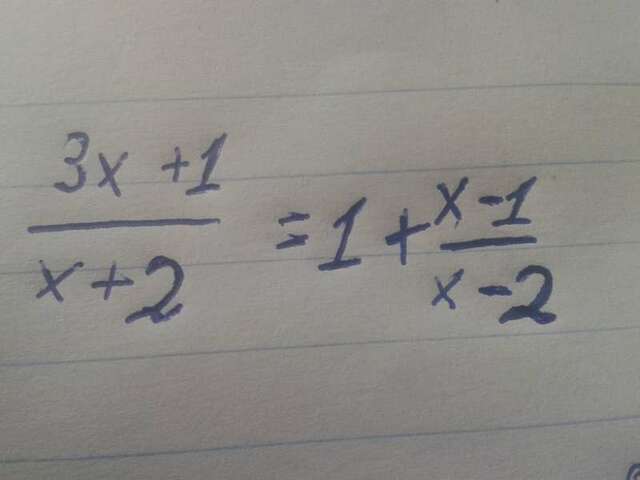 3x + 1 / x + 2 = 1 + x - 1 / x - 2